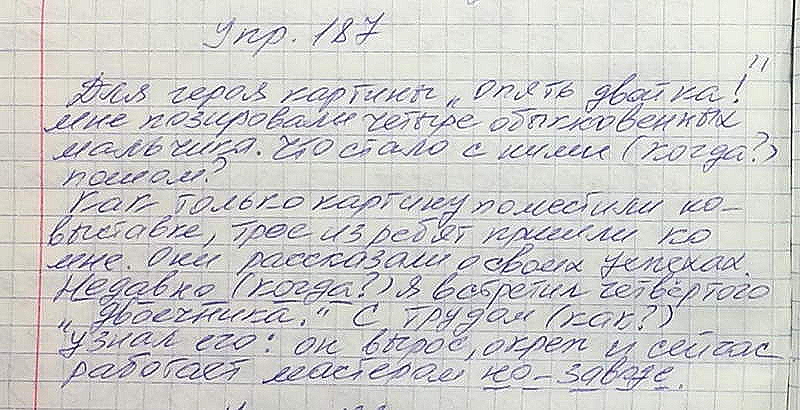 Упр. 187
Для героя картины „опять двойка!"
мне позировали четыре обыкновенных
мальчика. Что стало с ними (когда?)
потом?
Как только картину поместили но-
выставке, трое из ребят пришли ко
мне. Они рассказали о своих успехах.
Недавно (когда?) я встретил четвёртого
„двоечника." С трудом (как?)
узнал его: он вырос, окреп и сейчас
работает мастерам но-заводе.